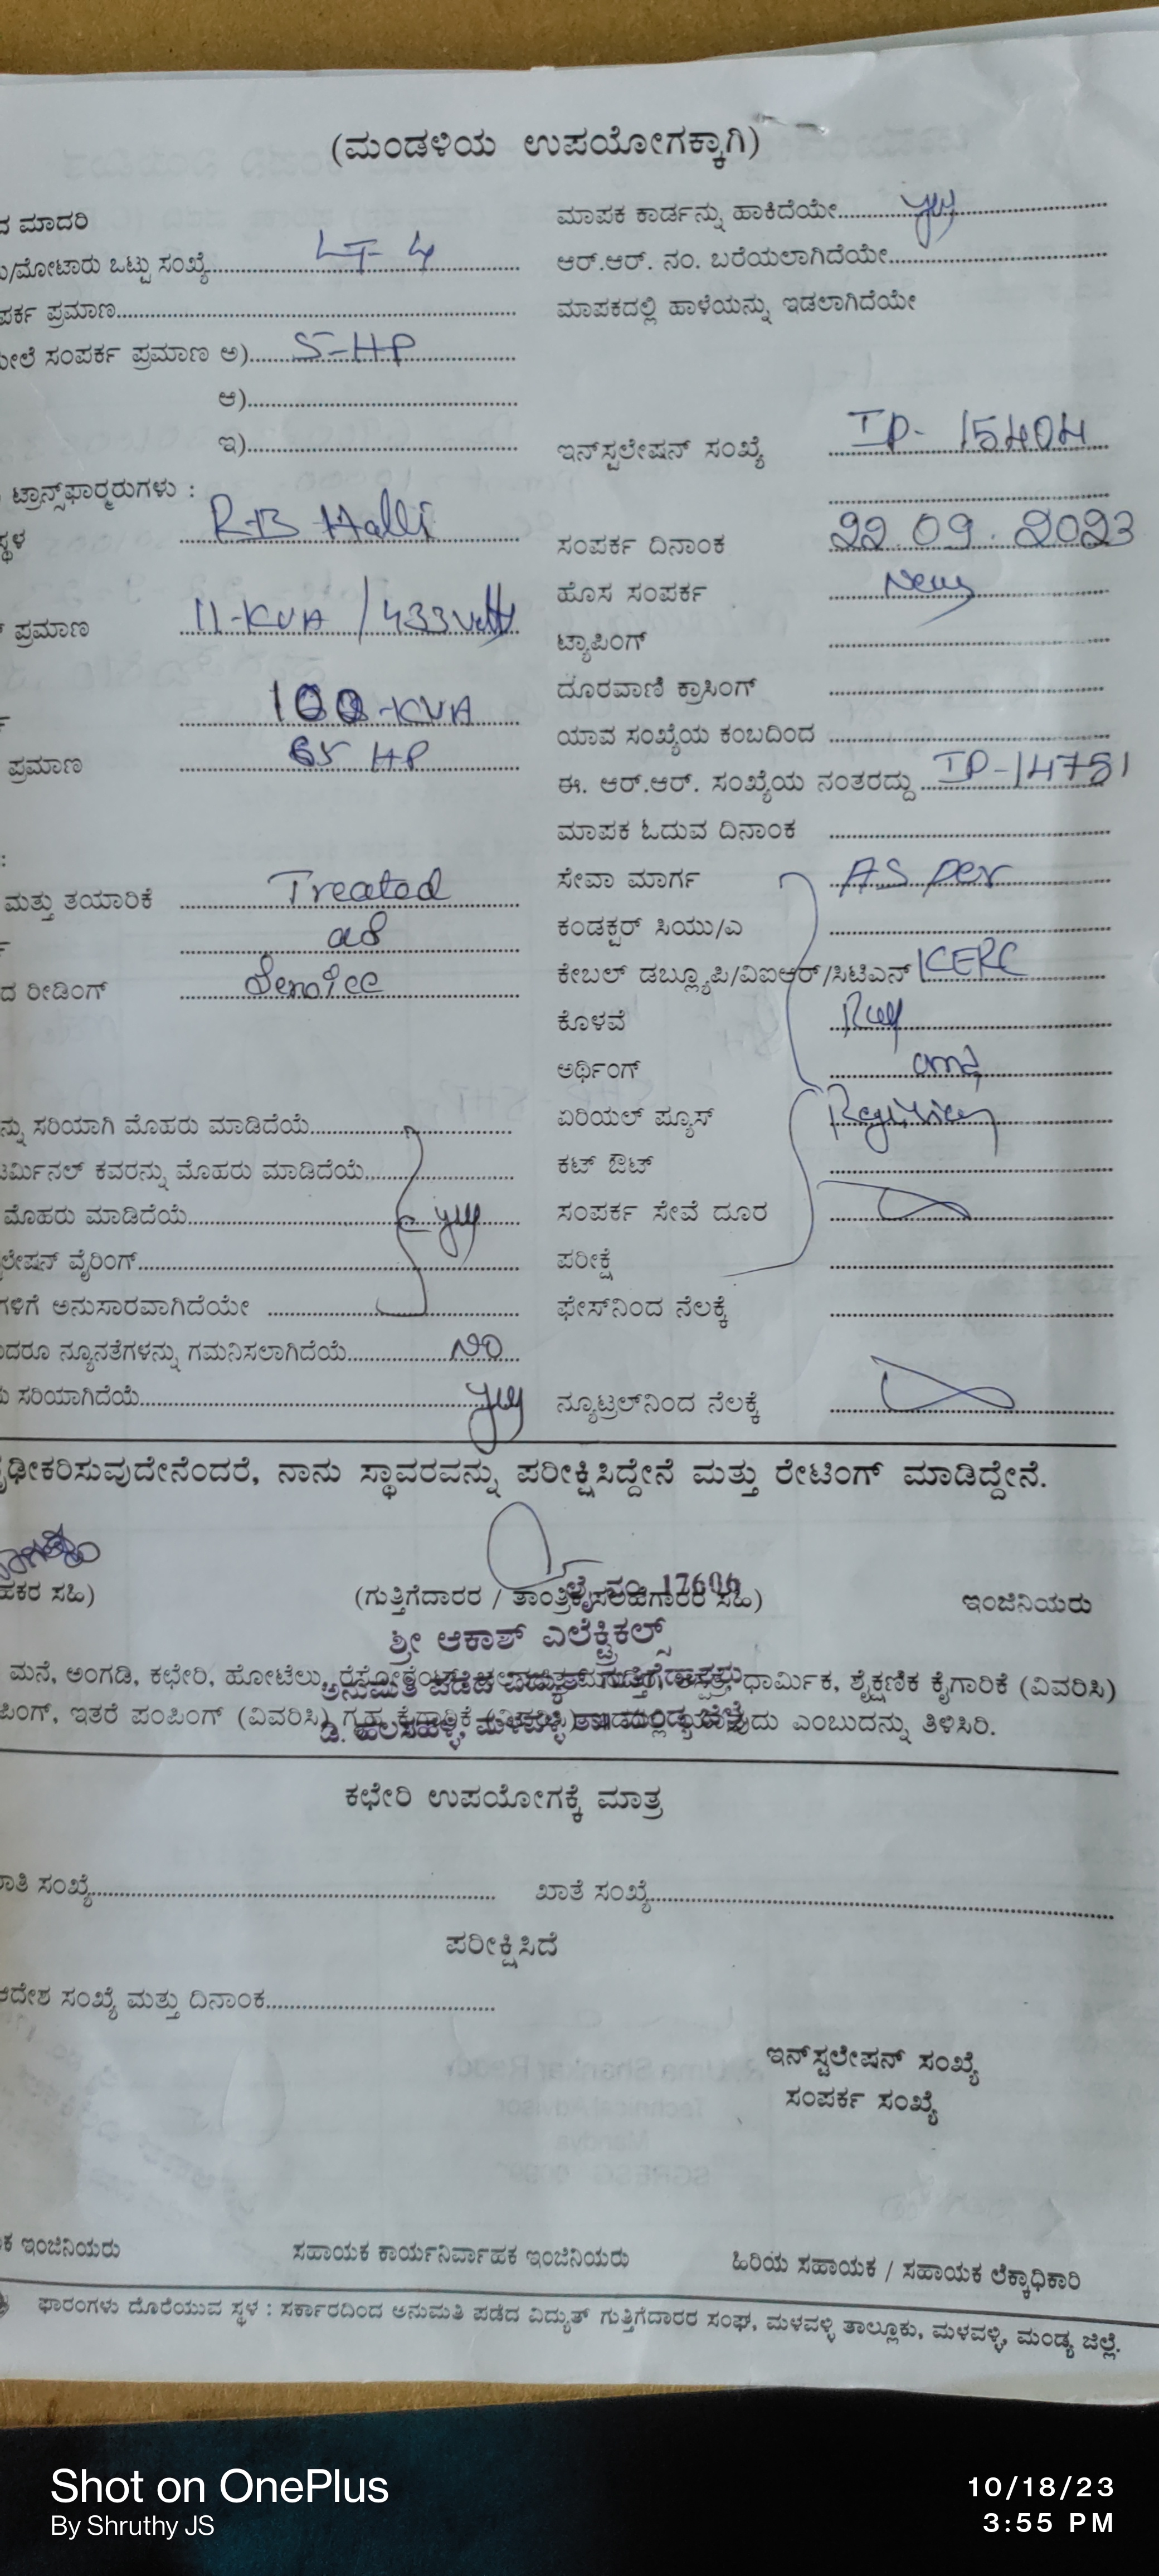 (ಮಂಡಳಿಯ ಉಪಯೋಗಕ್ಕಾಗಿ)
ದ ಮಾದರಿ
ು/ಮೋಟಾರು ಒಟ್ಟು ಸಂಖ್ಯೆ LT-4
ಪರ್ಕ ಪ್ರಮಾಣ
ಮೇಲೆ ಸಂಪರ್ಕ ಪ್ರಮಾಣ ಅ) 5-HP
ಆ)
ಇ)
ಟ್ರಾನ್ಸ್‌ಫಾರ್ಮರುಗಳು :
ಸ್ಥಳ R-B Halli
ಪ್ರಮಾಣ 11-KVA / 433 volts
100-KVA
ಪ್ರಮಾಣ 65 HP
:
ಮತ್ತು ತಯಾರಿಕೆ Treated
as
ದ ರೀಡಿಂಗ್ Service
ನ್ನು ಸರಿಯಾಗಿ ಮೊಹರು ಮಾಡಿದೆಯೆ
ಟರ್ಮಿನಲ್ ಕವರನ್ನು ಮೊಹರು ಮಾಡಿದೆಯೆ
ಮೊಹರು ಮಾಡಿದೆಯೆ yes
ಲೇಷನ್ ವೈರಿಂಗ್
ಗಳಿಗೆ ಅನುಸಾರವಾಗಿದೆಯೇ
ದರೂ ನ್ಯೂನತೆಗಳನ್ನು ಗಮನಿಸಲಾಗಿದೆಯೆ NO
ು ಸರಿಯಾಗಿದೆಯೆ yes
ಮಾಪಕ ಕಾರ್ಡನ್ನು ಹಾಕಿದೆಯೇ yes
ಆರ್.ಆರ್. ನಂ. ಬರೆಯಲಾಗಿದೆಯೇ
ಮಾಪಕದಲ್ಲಿ ಹಾಳೆಯನ್ನು ಇಡಲಾಗಿದೆಯೇ
ಇನ್‌ಸ್ಟಲೇಷನ್ ಸಂಖ್ಯೆ IP-15404
ಸಂಪರ್ಕ ದಿನಾಂಕ 22.09.2023
ಹೊಸ ಸಂಪರ್ಕ New
ಟ್ಯಾಪಿಂಗ್
ದೂರವಾಣಿ ಕ್ರಾಸಿಂಗ್
ಯಾವ ಸಂಖ್ಯೆಯ ಕಂಬದಿಂದ
ಈ. ಆರ್.ಆರ್. ಸಂಖ್ಯೆಯ ನಂತರದ್ದು IP-14751
ಮಾಪಕ ಓದುವ ದಿನಾಂಕ
ಸೇವಾ ಮಾರ್ಗ AS per
ಕಂಡಕ್ಟರ್ ಸಿಯು/ಎ
ಕೇಬಲ್ ಡಬ್ಲ್ಯೂಪಿ/ವಿಐಆರ್/ಸಿಟಿಎನ್ KERC
ಕೊಳವೆ
ಅರ್ಥಿಂಗ್ and
ಏರಿಯಲ್ ಪ್ಯೂಸ್
ಕಟ್ ಔಟ್
ಸಂಪರ್ಕ ಸೇವೆ ದೂರ
ಪರೀಕ್ಷೆ
ಫೇಸ್‌ನಿಂದ ನೆಲಕ್ಕೆ
ನ್ಯೂಟ್ರಲ್‌ನಿಂದ ನೆಲಕ್ಕೆ
ಢೀಕರಿಸುವುದೇನೆಂದರೆ, ನಾನು ಸ್ಥಾವರವನ್ನು ಪರೀಕ್ಷಿಸಿದ್ದೇನೆ ಮತ್ತು ರೇಟಿಂಗ್ ಮಾಡಿದ್ದೇನೆ.
ಹಕರ ಸಹಿ) (ಗುತ್ತಿಗೆದಾರರ / ತಾಂತ್ರಿಕ ಸಲಹೆಗಾರರ ಸಹಿ) ಇಂಜಿನಿಯರು
ಲೈ ನಂ. 17606
ಶ್ರೀ ಆಕಾಶ್ ಎಲೆಕ್ಟ್ರಿಕಲ್ಸ್
ಮನೆ, ಅಂಗಡಿ, ಕಛೇರಿ, ಹೋಟೆಲು, ಧಾರ್ಮಿಕ, ಶೈಕ್ಷಣಿಕ ಕೈಗಾರಿಕೆ (ವಿವರಿಸಿ)
ಪಿಂಗ್, ಇತರೆ ಪಂಪಿಂಗ್ (ವಿವರಿಸಿ) ಎಂಬುದನ್ನು ತಿಳಿಸಿರಿ.
ಕಛೇರಿ ಉಪಯೋಗಕ್ಕೆ ಮಾತ್ರ
ಸಂಖ್ಯೆ ಖಾತೆ ಸಂಖ್ಯೆ
ಪರೀಕ್ಷಿಸಿದೆ
ಆದೇಶ ಸಂಖ್ಯೆ ಮತ್ತು ದಿನಾಂಕ
ಇನ್‌ಸ್ಟಲೇಷನ್ ಸಂಖ್ಯೆ
ಸಂಪರ್ಕ ಸಂಖ್ಯೆ
ಕ ಇಂಜಿನಿಯರು ಸಹಾಯಕ ಕಾರ್ಯನಿರ್ವಾಹಕ ಇಂಜಿನಿಯರು ಹಿರಿಯ ಸಹಾಯಕ / ಸಹಾಯಕ ಲೆಕ್ಕಾಧಿಕಾರಿ
ಫಾರಂಗಳು ದೊರೆಯುವ ಸ್ಥಳ : ಸರ್ಕಾರದಿಂದ ಅನುಮತಿ ಪಡೆದ ವಿದ್ಯುತ್ ಗುತ್ತಿಗೆದಾರರ ಸಂಘ, ಮಳವಳ್ಳಿ ತಾಲ್ಲೂಕು, ಮಳವಳ್ಳಿ, ಮಂಡ್ಯ ಜಿಲ್ಲೆ.
Shot on OnePlus
By Shruthy JS
10/18/23
3:55 PM